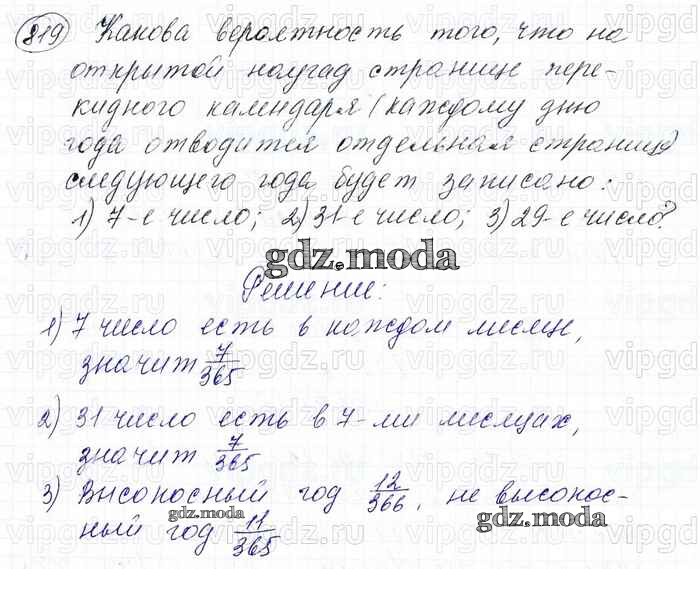 819 Какова вероятность того, что на
открытой наугад странице пере-
кидного календаря (каждому дню
года отводится отдельная страница)
следующего года будет записано:
1) 7-е число; 2) 31-е число; 3) 29-е число?
gdz.moda
Решение:
1) 7 число есть в каждом месяце,
значит 7/365
2) 31 число есть в 7-ми месяцах,
значит 7/365
3) Высокосный год 12/366, не высокос-
gdz.moda gdz.moda
ный год 11/365
vipgdz.ru